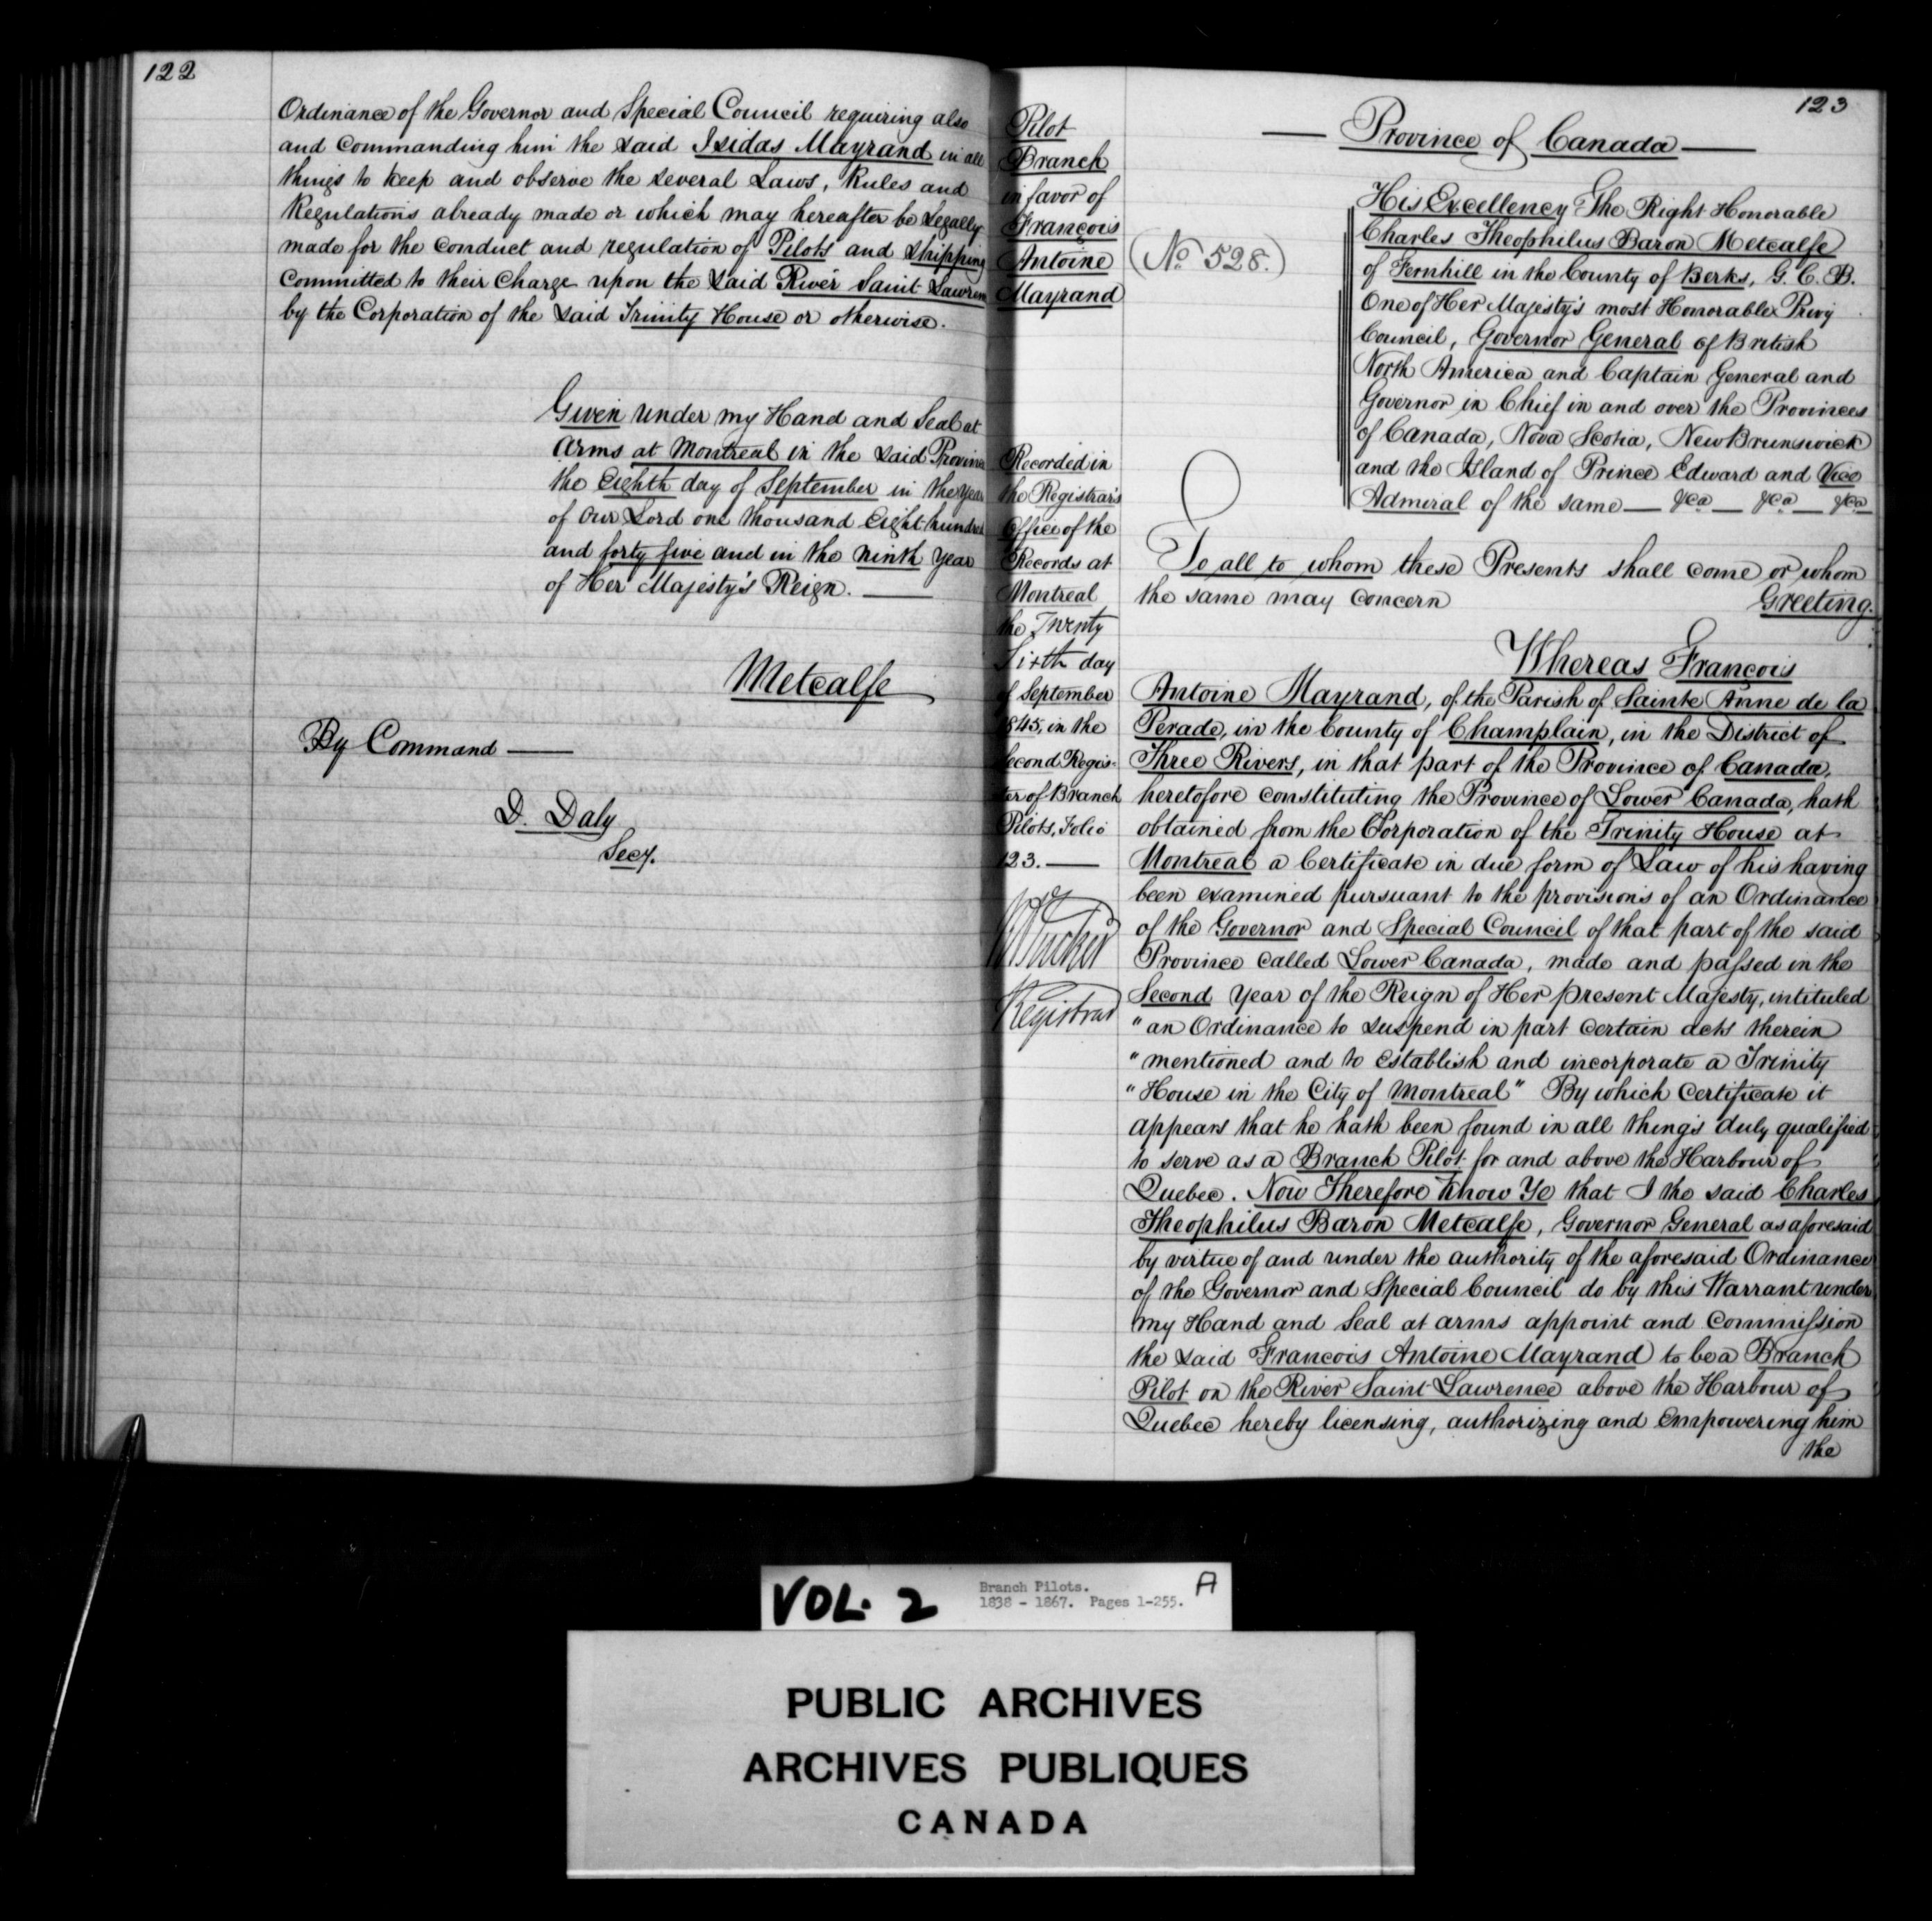 122
Ordinance of the Governor and Special Council requiring also
and Commanding him the said Isidas Mayrand in all
things to keep and observe the several Laws, Rules and
Regulations already made or which may hereafter be Legally
made for the conduct and regulation of Pilots and Shipping
Committed to their Charge upon the said River Saint Lawren
by the Corporation of the said Trinity House or otherwise.
Given under my Hand and Seal at
Arms at Montreal in the said Province
the Eighth day of September in the Year
of Our Lord one thousand Eight hundred
and forty five and in the Ninth Year
of Her Majesty's Reign. —
Metcalfe
By Command —
D. Daly
Secy.
123
Pilot
Branch
in favor of
François
Antoine
Mayrand
Recorded in
the Registrar's
Office of the
Records at
Montreal
the Twenty
Sixth day
of September
1845, in the
Second Regis-
ter of Branch
Pilots, Folio
123. —
Registrar
— Province of Canada —
(No. 528.)
His Excellency The Right Honorable
Charles Theophilus Baron Metcalfe
of Fernhill in the County of Berks, G. C. B.
One of Her Majesty's most Honorable Privy
Council, Governor General of British
North America and Captain General and
Governor in Chief in and over the Provinces
of Canada, Nova Scotia, New Brunswick
and the Island of Prince Edward and Vice
Admiral of the same — &ca — &ca — &ca
To all to whom these Presents shall come or whom
the same may concern Greeting.
Whereas François
Antoine Mayrand, of the Parish of Sainte Anne de la
Perade, in the County of Champlain, in the District of
Three Rivers, in that part of the Province of Canada,
heretofore constituting the Province of Lower Canada, hath
obtained from the Corporation of the Trinity House at
Montreal a Certificate in due form of Law of his having
been examined pursuant to the provisions of an Ordinance
of the Governor and Special Council of that part of the said
Province called Lower Canada, made and passed in the
Second Year of the Reign of Her present Majesty, intituled
"an Ordinance to suspend in part certain acts therein
"mentioned and to establish and incorporate a Trinity
"House in the City of Montreal" By which Certificate it
appears that he hath been found in all things duly qualified
to serve as a Branch Pilot for and above the Harbour of
Quebec. Now Therefore Know Ye that I the said Charles
Theophilus Baron Metcalfe, Governor General as aforesaid
by virtue of and under the authority of the aforesaid Ordinance
of the Governor and Special Council do by this Warrant under
my Hand and Seal at arms appoint and Commission
the said Francois Antoine Mayrand to be a Branch
Pilot on the River Saint Lawrence above the Harbour of
Quebec hereby licensing, authorizing and Empowering him
the
VOL. 2
Branch Pilots.
1838 - 1867. Pages 1-255.
A
PUBLIC ARCHIVES
ARCHIVES PUBLIQUES
CANADA